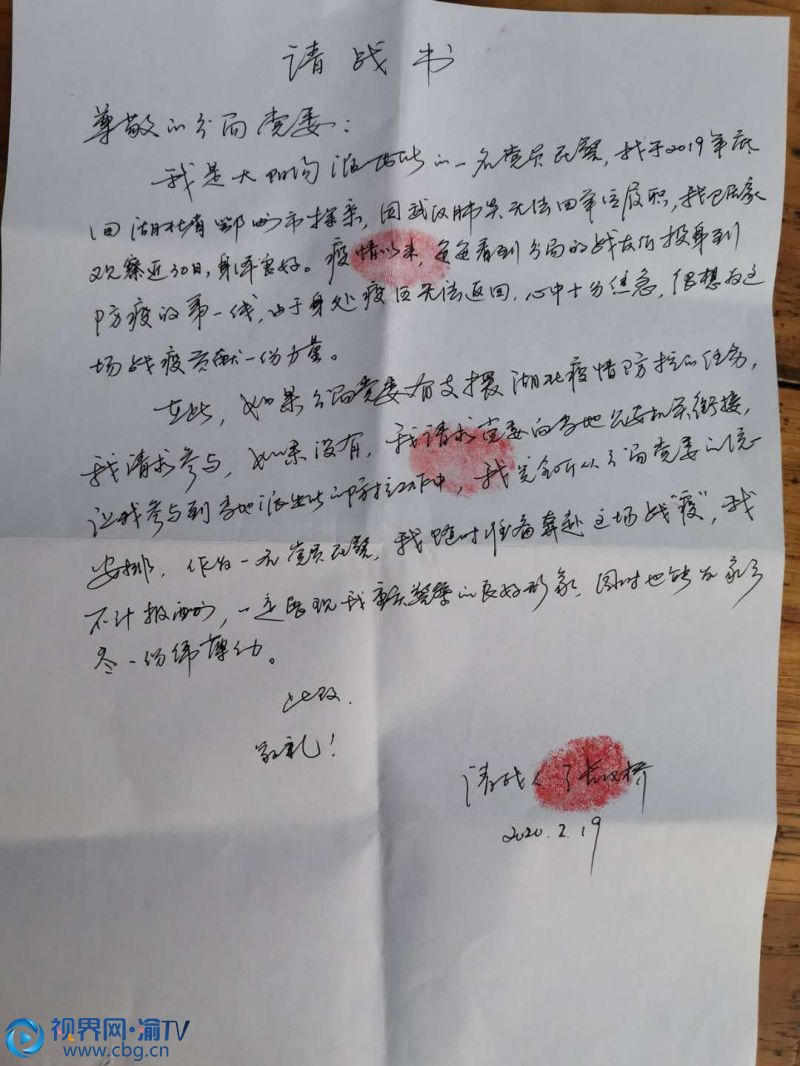 请战书
尊敬的分局党委：
我是大阳沟派出所的一名党员民警，我于2019年底
回湖北省鄂州市探亲，因武汉肺炎无法回单位履职，我已居家
观察近30日，身体良好。疫情以来，每每看到分局的战友们投身到
防疫的第一线，由于身处疫区无法返回，心中十分焦急，很想为这
场战疫贡献一份力量。
在此，如果分局党委有支援湖北疫情防控的任务，
我请求参与，如果没有，我请求党委向当地公安机关衔接，
让我参与到当地派出所的防控工作中，我完全听从分局党委的统一
安排，作为一名党员民警，我随时准备奔赴这场战“疫”，我
不计报酬，一定展现我重庆警察的良好形象，同时也能为家乡
尽一份绵薄力。
此致
敬礼！
请战人
2020.2.19
视界网·渝TV
www.cbg.cn